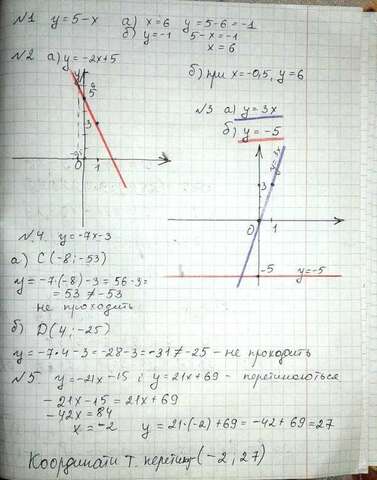 №1 y=5-x а) x=6 y=5-6=-1
б) y=-1 5-x=-1
x=6
№2 а) y=-2x+5 б) при x=-0,5, y=6
№3 а) y=3x
б) y=-5
y
5
3
0
1
3
0
1
-5
y=-5
№4 y=-7x-3
а) C(-8;-53)
y=-7·(-8)-3=56-3=
=53≠-53
не проходить
б) D(4;-25)
y=-7·4-3=-28-3=-31≠-25 - не проходить
№5 y=-21x-15 і y=21x+69 - перетинаються
-21x-15=21x+69
-42x=84
x=-2 y=21·(-2)+69=-42+69=27
Координати т. перетину (-2; 27)